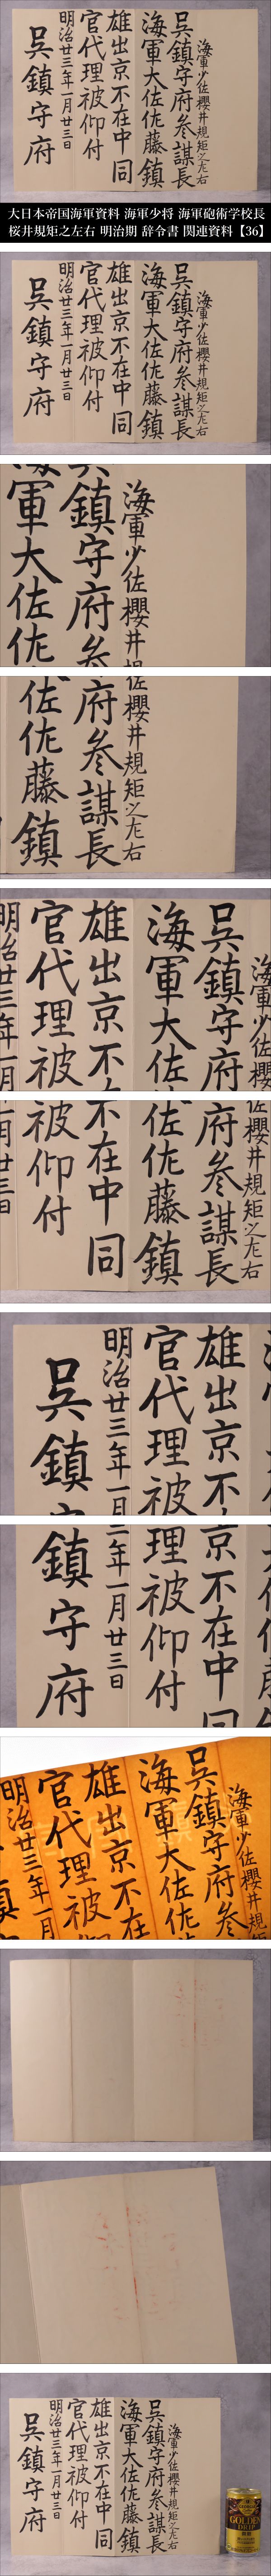 海軍少佐櫻井規矩之左右
呉鎮守府参謀長
海軍大佐佐藤鎮
雄出京不在中同
官代理被仰付
明治廿三年一月廿三日
呉鎮守府
大日本帝国海軍資料 海軍少将 海軍砲術学校長
桜井規矩之左右 明治期 辞令書 関連資料【36】
海軍少佐櫻井規矩之左右
呉鎮守府参謀長
海軍大佐佐藤鎮
雄出京不在中同
官代理被仰付
明治廿三年一月廿三日
呉鎮守府
海軍少佐櫻井規
鎮守府参
軍大佐佐
佐櫻井規矩之左右
府参謀長
佐佐藤鎮
海軍少佐櫻
呉鎮守府
海軍大佐
雄出京不
官代理被
明治廿三年一月
佐櫻井規矩之左右
府参謀長
佐佐藤鎮
不在中同
被仰付
月廿三日
雄出京不
官代理被
明治廿三年一月
呉鎮守
京不在中同
理被仰付
三年一月廿三日
鎮守府
海軍少佐櫻井規
呉鎮守府参
海軍大佐佐
雄出京不在
官代理被仰
明治廿三年一月
海軍少佐櫻井規矩之左右
呉鎮守府参謀長
海軍大佐佐藤鎮
雄出京不在中同
官代理被仰付
明治廿三年一月廿三日
呉鎮守府
GOLDEN
DRIP